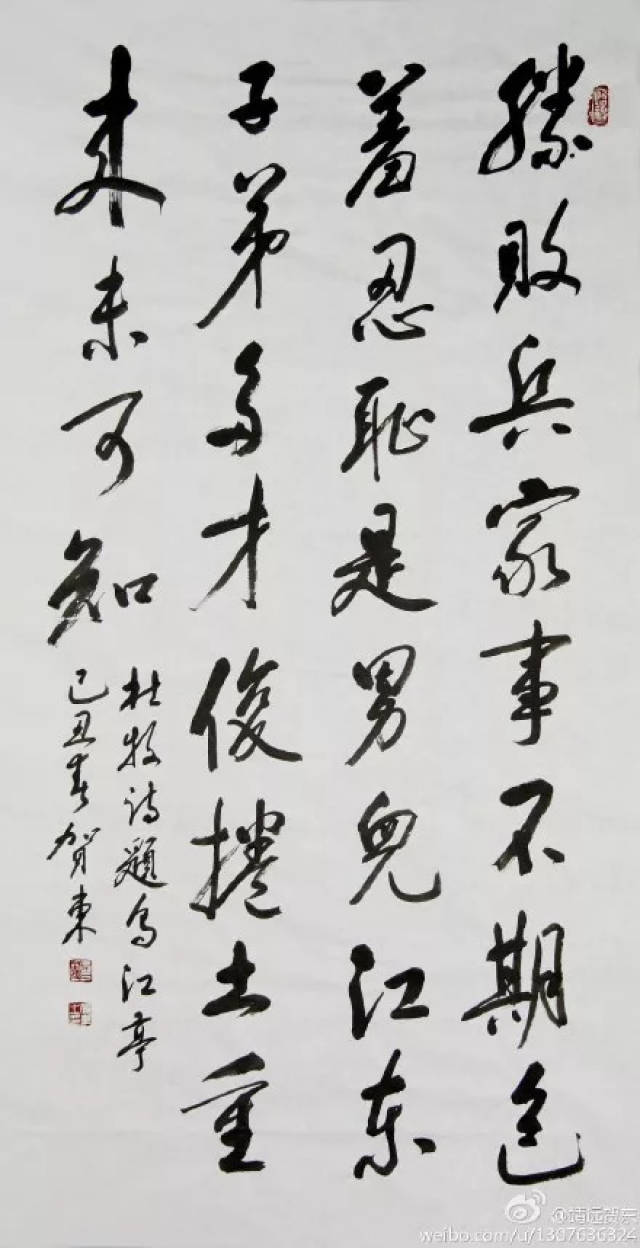 勝敗兵家事不期包
羞忍恥是男兒江东
子弟多才俊捲土重
来未可知
杜牧诗題乌江亭
己丑春贺東
@靖远贺东
weibo.com/u/1307636324